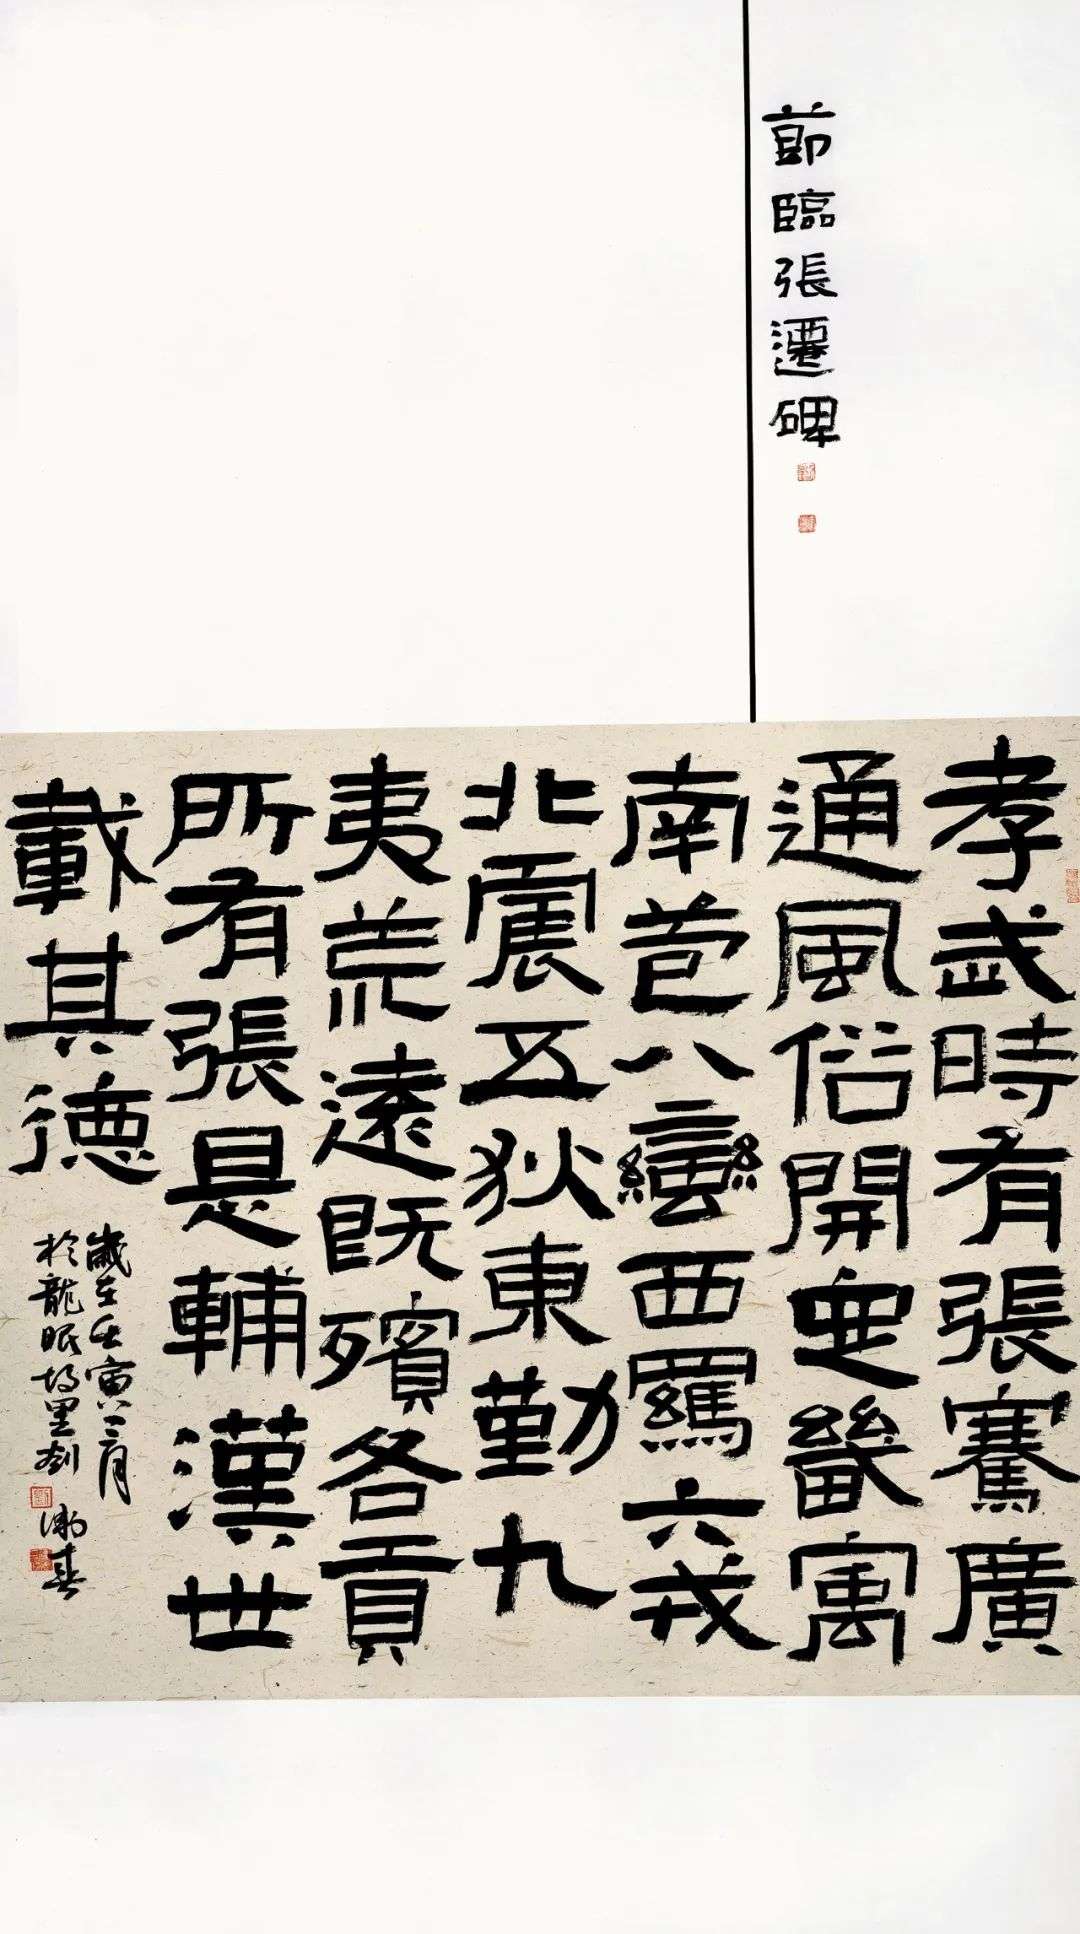 莭臨張遷碑
孝武時有張騫廣
通風俗開定畿寓
南苞八蠻西羈六戎
北震五狄東勤九
夷荒遠既殯各貢
所有張是輔漢世
載其德
歲在壬寅三月
於龍眠故里